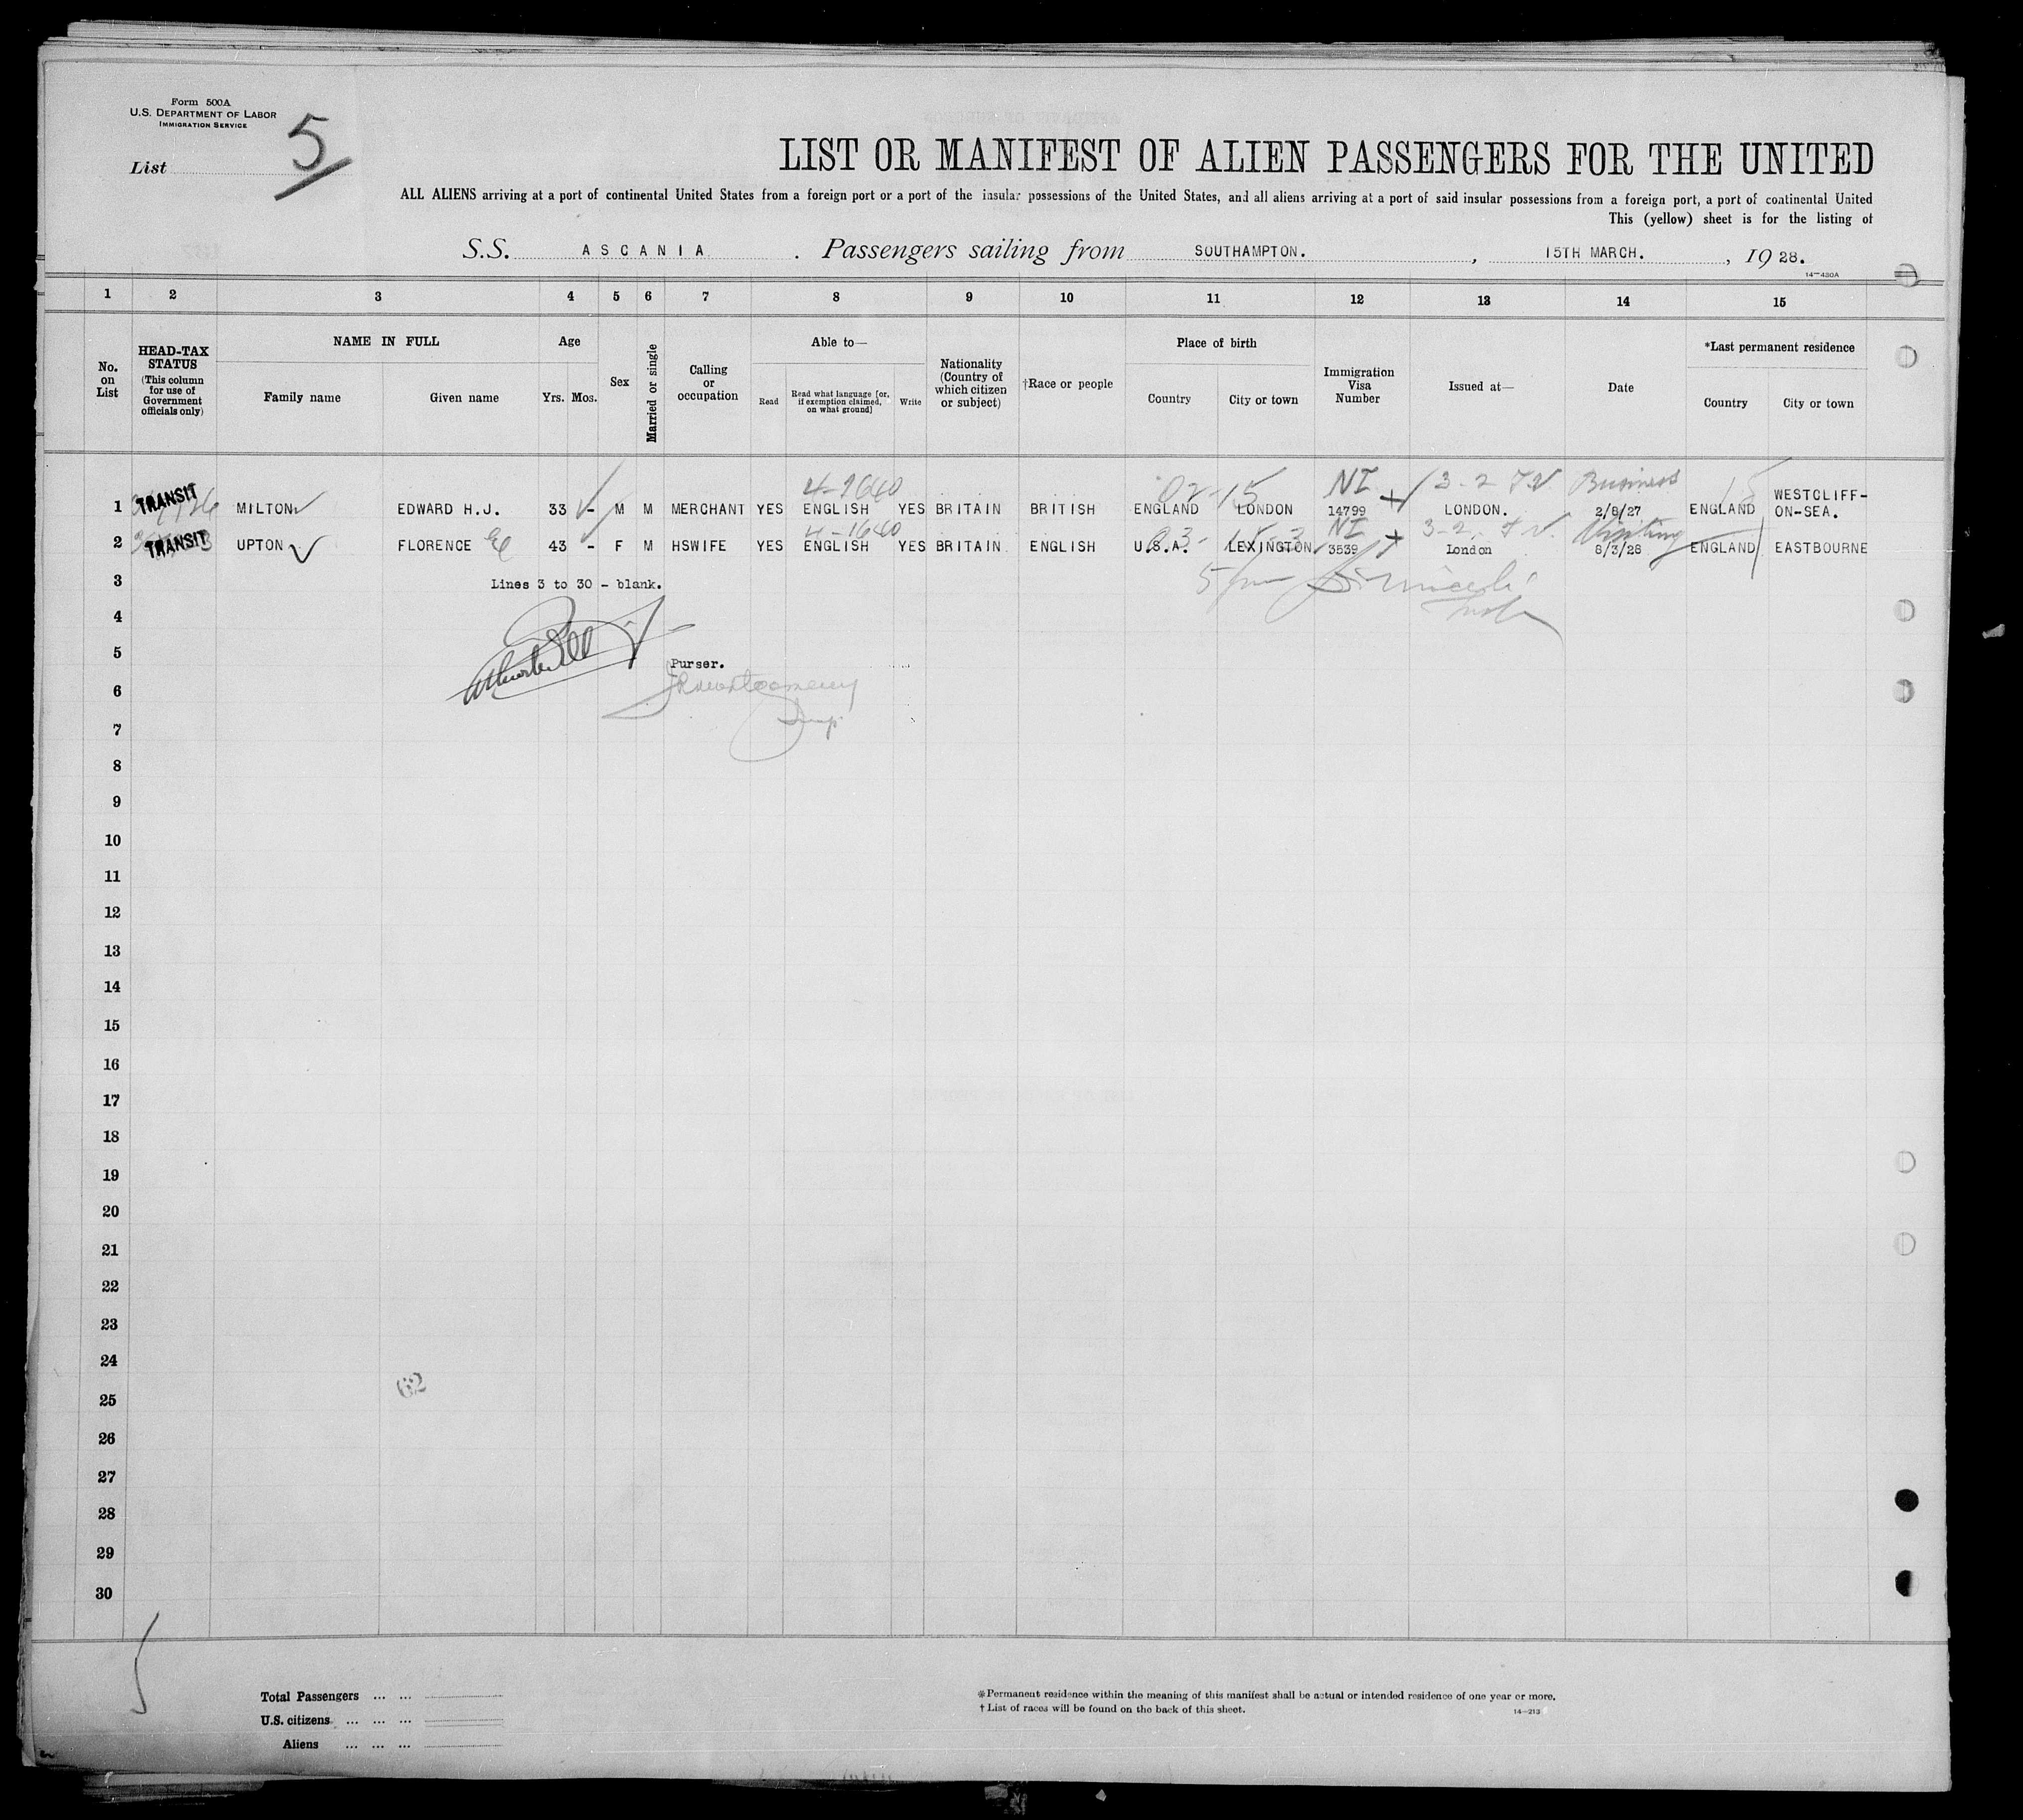 Form 500A
U.S. DEPARTMENT OF LABOR
IMMIGRATION SERVICE
List 5
LIST OR MANIFEST OF ALIEN PASSENGERS FOR THE UNITED
ALL ALIENS arriving at a port of continental United States from a foreign port or a port of the insular possessions of the United States, and all aliens arriving at a port of said insular possessions from a foreign port, a port of continental United
This (yellow) sheet is for the listing of
S.S. ASCANIA. Passengers sailing from SOUTHAMPTON., 15TH MARCH., 1928.
14—430A
1 2 3 4 5 6 7 8 9 10 11 12 13 14 15
No. on List
HEAD-TAX STATUS (This column for use of Government officials only)
NAME IN FULL
Family name
Given name
Age
Yrs. Mos.
Sex
Married or single
Calling or occupation
Able to—
Read
Read what language [or, if exemption claimed, on what ground]
Write
Nationality (Country of which citizen or subject)
†Race or people
Place of birth
Country
City or town
Immigration Visa Number
Issued at—
Date
*Last permanent residence
Country
City or town
4-1640 02-15 NI 3-2 T.V. Business
1 TRANSIT MILTON EDWARD H.J. 33 - M M MERCHANT YES ENGLISH YES BRITAIN BRITISH ENGLAND LONDON 14799 LONDON. 2/8/27 ENGLAND WESTCLIFF-ON-SEA.
4-1640 NI 3-2 T.V. Visiting
2 TRANSIT UPTON FLORENCE 43 - F M HSWIFE YES ENGLISH YES BRITAIN ENGLISH U.S.A. LEXINGTON 3539 London 8/3/28 ENGLAND EASTBOURNE
3 Lines 3 to 30 - blank.
4
5 Purser.
6
7
8
9
10
11
12
13
14
15
16
17
18
19
20
21
22
23
24
62
25
26
27
28
29
30
Total Passengers ... ...
U.S. citizens ... ... ...
Aliens ... ... ...
*Permanent residence within the meaning of this manifest shall be actual or intended residence of one year or more.
†List of races will be found on the back of this sheet.
14—213